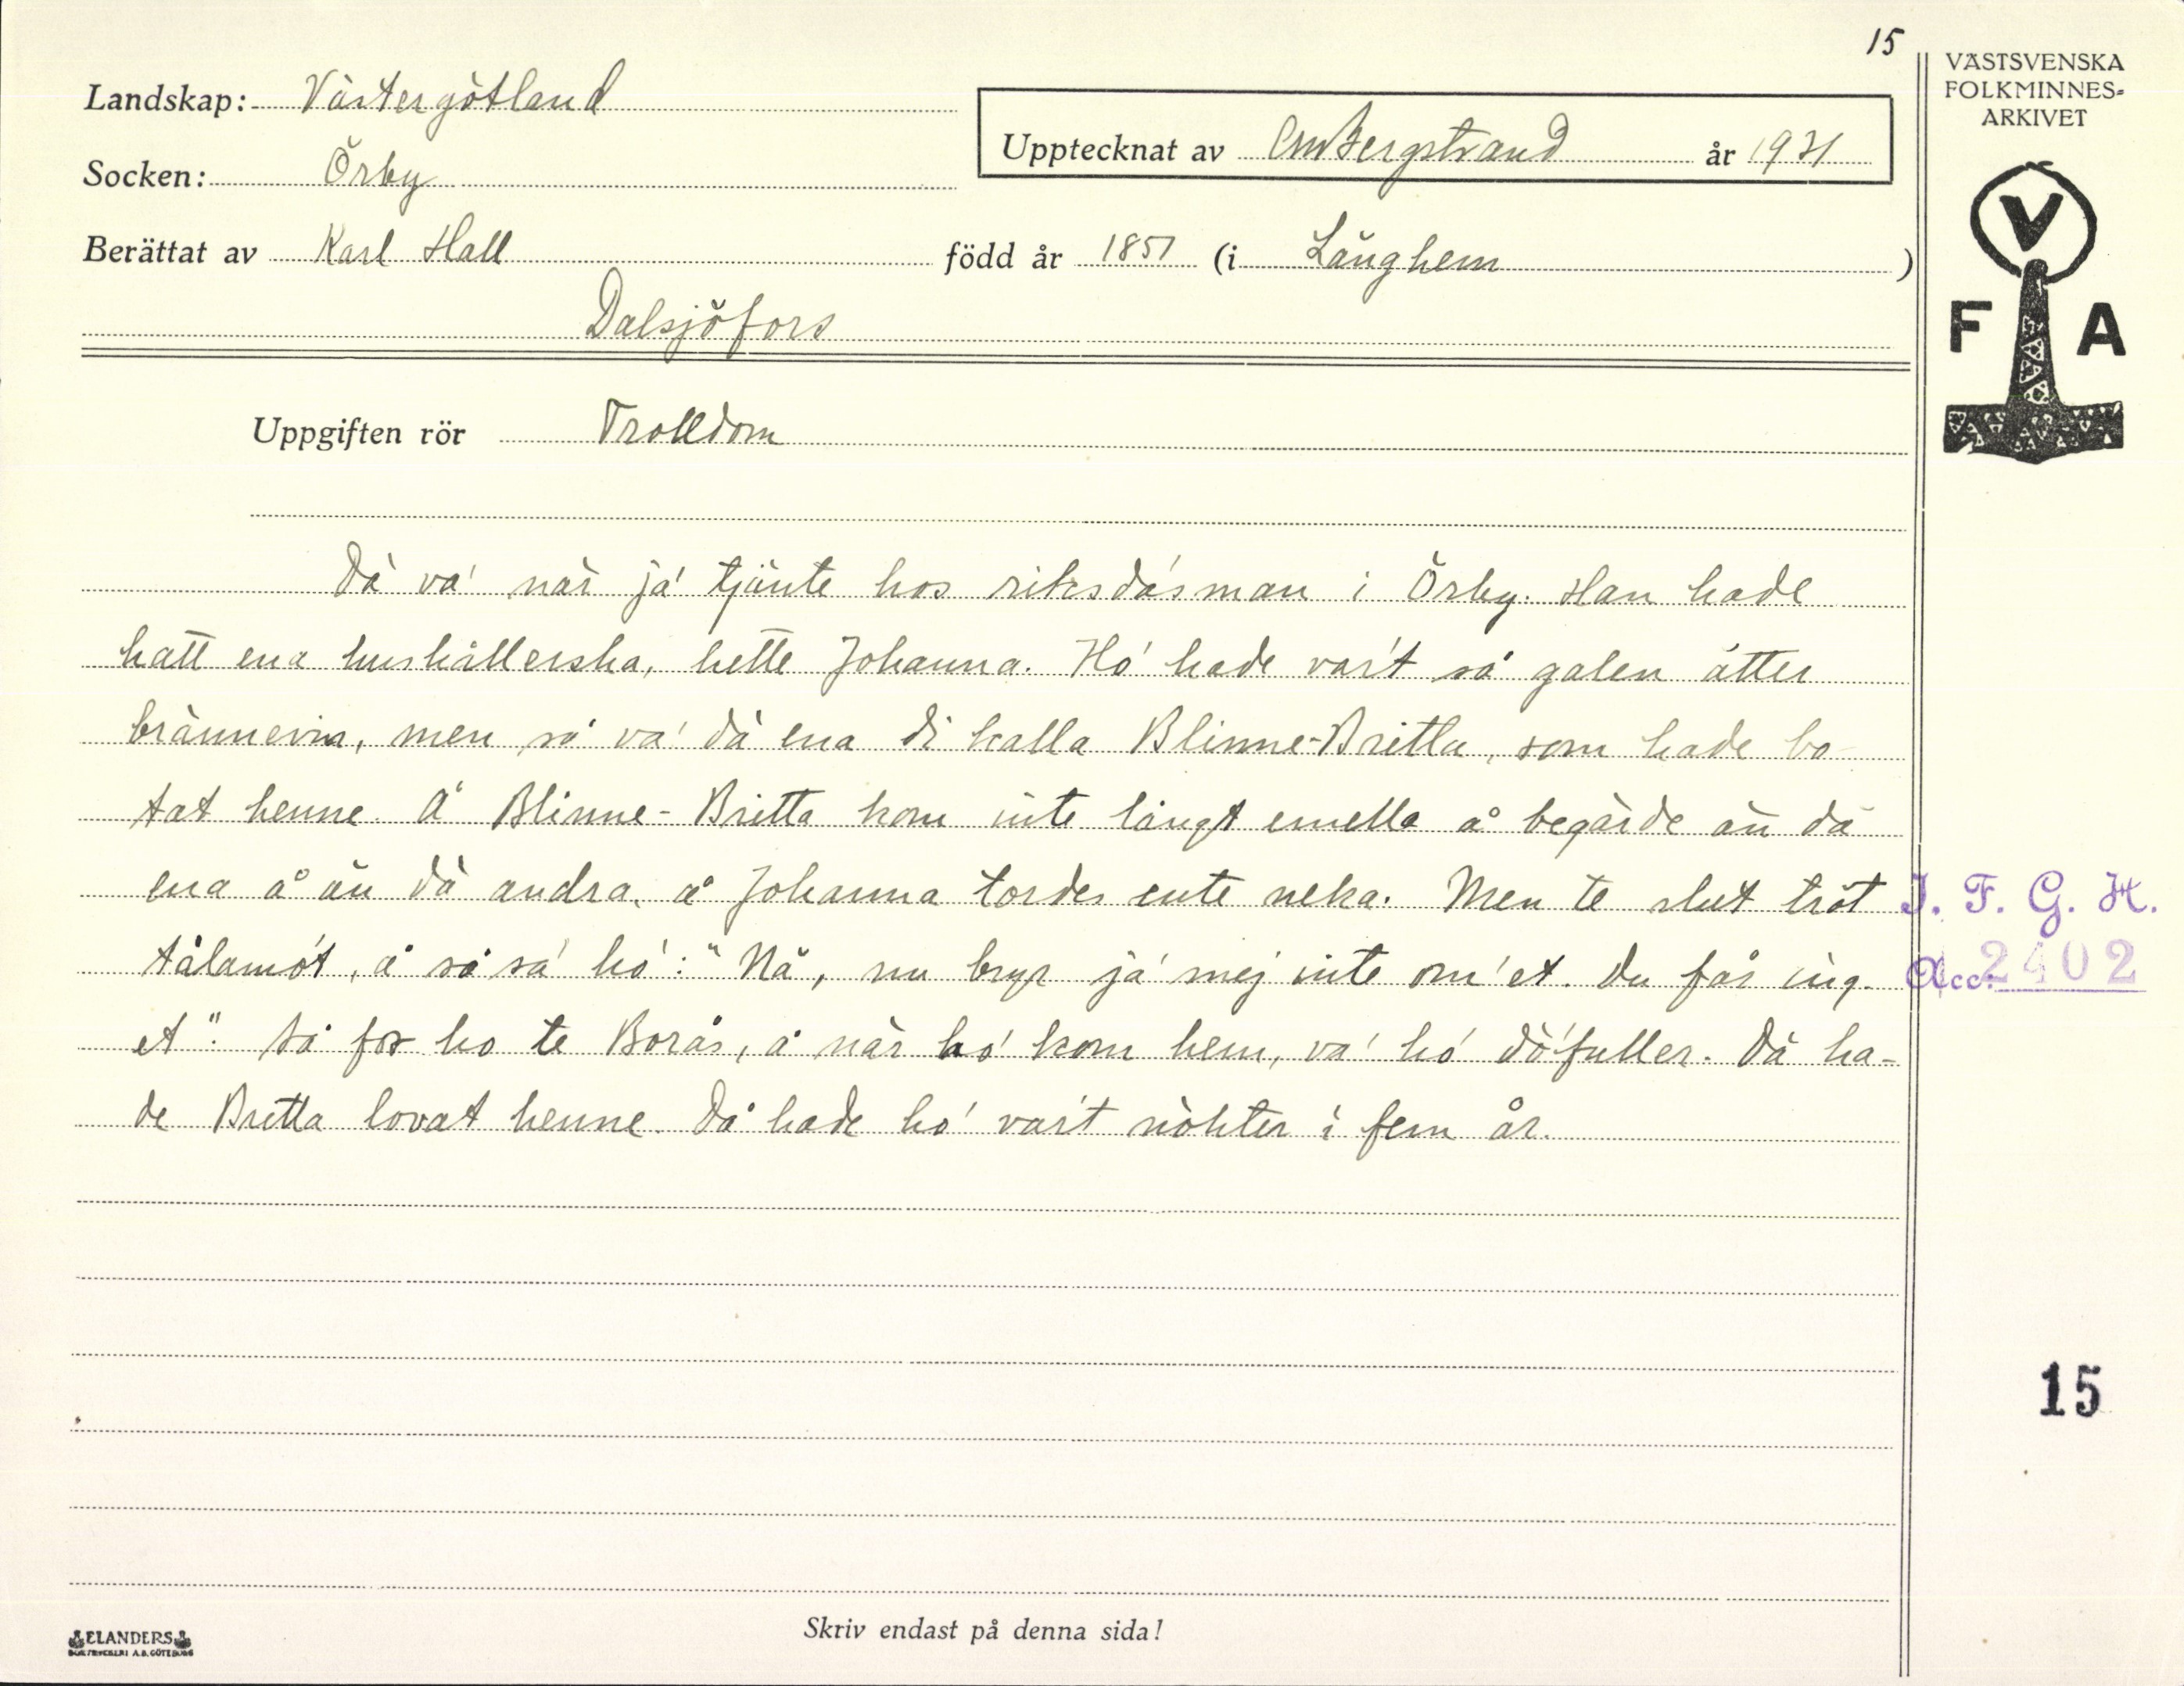 15
VÄSTSVENSKA
FOLKMINNES-
ARKIVET
Landskap: Västergötland
Upptecknat av CM Bergstrand år 1931
Socken: Örby
Berättat av Karl Hall född år 1851 (i Länghem)
Dalsjöfors
V
F A
Uppgiften rör Trolldom
Dä va' när ja' tjänte hos riksda's man i Örby. Han hade
hatt ena hushållerska, hette Johanna. Ho' hade var't så galen ätter
brännevin, men så va' dä ena di kalla Blinne-Britta, som hade bo-
tat henne. Å Blinne-Britta kom inte långt emella å begärde än dä
ena å än dä andra, å Johanna tordes ente neka. Men te slut tröt
tålamo't, å så sa' ho': "Nä, nu bryr ja' mej inte om'et. Du får ing-
et". Så for ho te Borås, å när ho' kom hem, va' ho' dö'fuller. Dä ha-
de Britta lovat henne. Då hade ho' var't nökter i fem år.
I. F. G. H.
Acc. 2402
15
Skriv endast på denna sida!
ELANDERS
BOKTRYCKERI A.B. GÖTEBORG